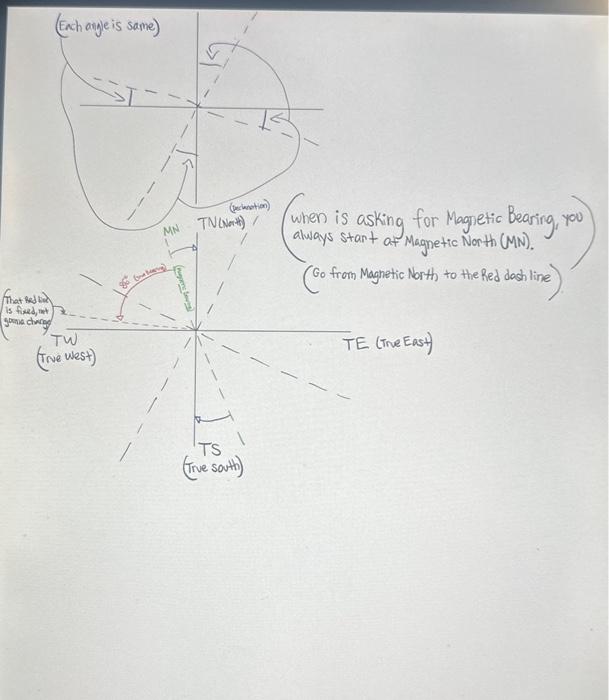 (Each angle is same)
(Declination)
TN (North)
MN
(when is asking for Magnetic Bearing, you
always start at Magnetic North (MN).
(Go from Magnetic North to the Red dash line)
80° (true bearing)
(magnetic bearing)
(That Red line
is fixed, not
gonna change)
TW
(True West)
TE (True East)
TS
(True south)